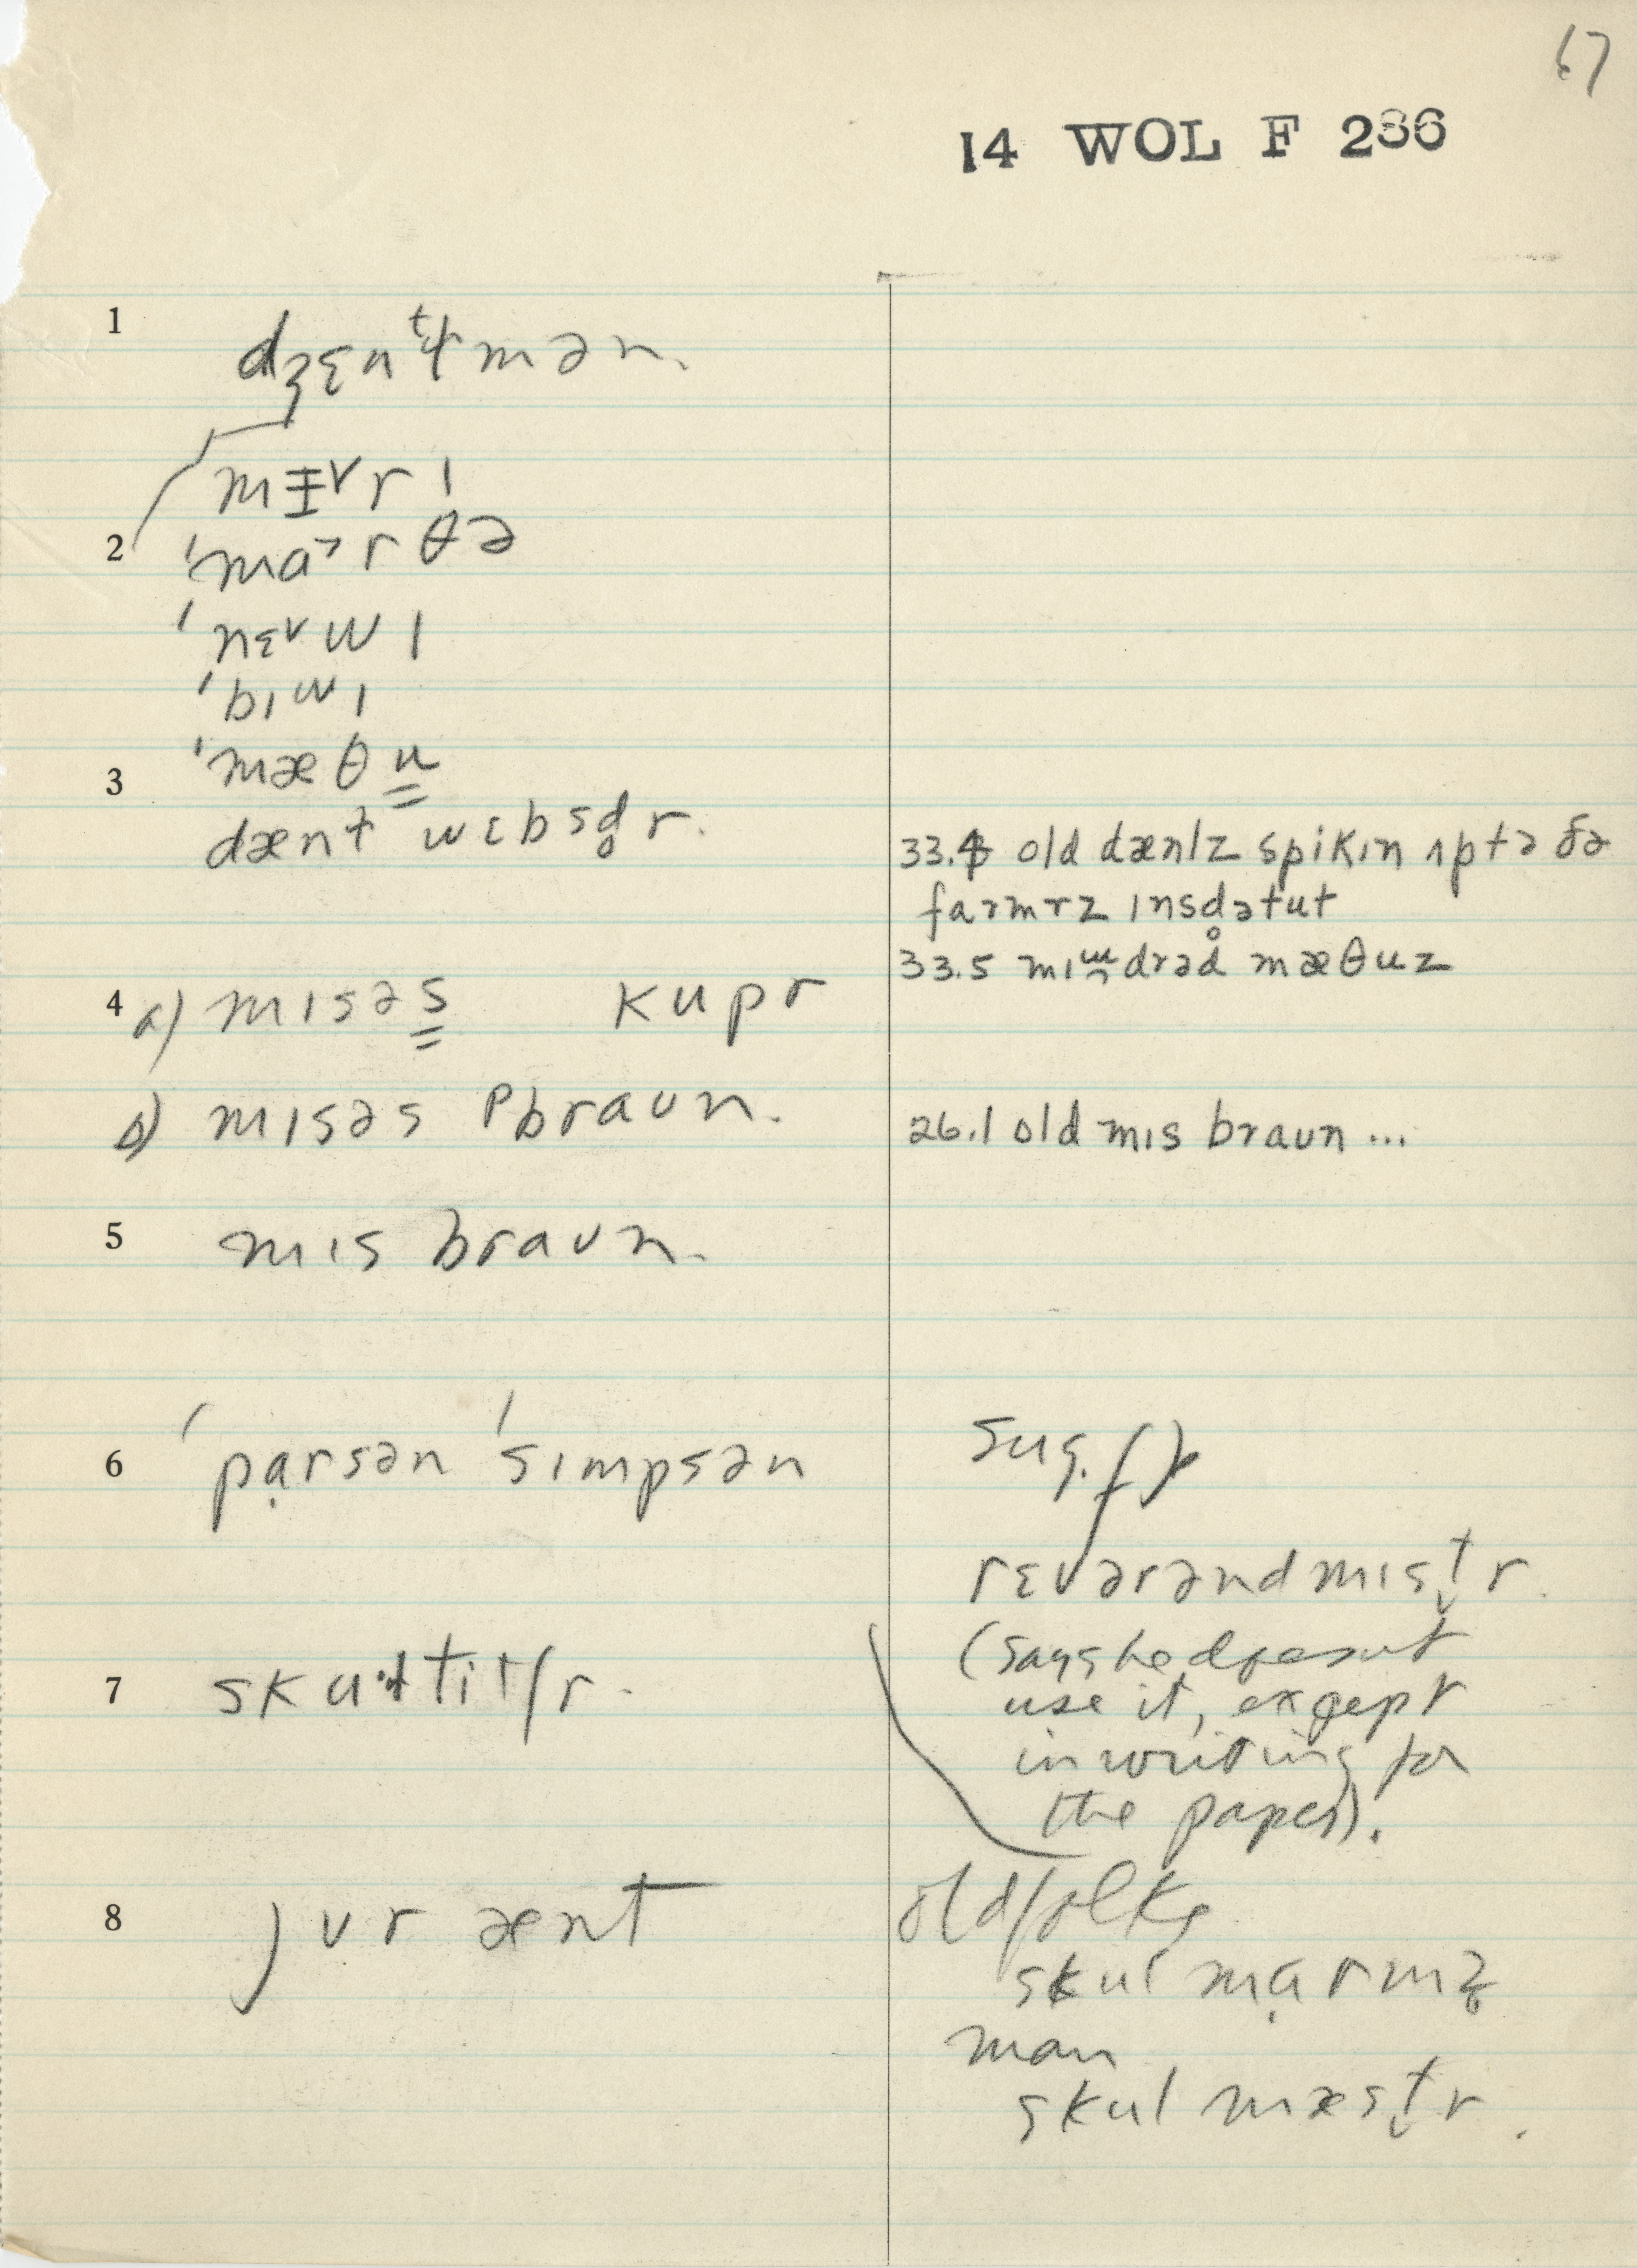 67
14 WOL F 236
1 dʒɛntɫmən.
mɪ˅rɪ
2 'ma˃rθə
'nɛ˅wɪ
'bɪwɪ
3 'mæθu
dænɫ wɛbsd̥r.
33.4 old dænlz spikɪn ʌptə ðə
farmrz ɪnsd̥ətut
33.5 mɪndrəd mæθuz
4 a) mɪsəs kupr
b) mɪsəs braun.
26.1 old mɪs braun ...
5 mɪs braun.
6 'pạrsən 'sɪmpsən
sug.
rɛvərənd mɪst̬r.
(says he doesn't
use it, except
in writing for
the papers).
7 skul titʃr.
8 jʊr ænt
old folks
skul mạrmz̥
man
skul mæst̬r.